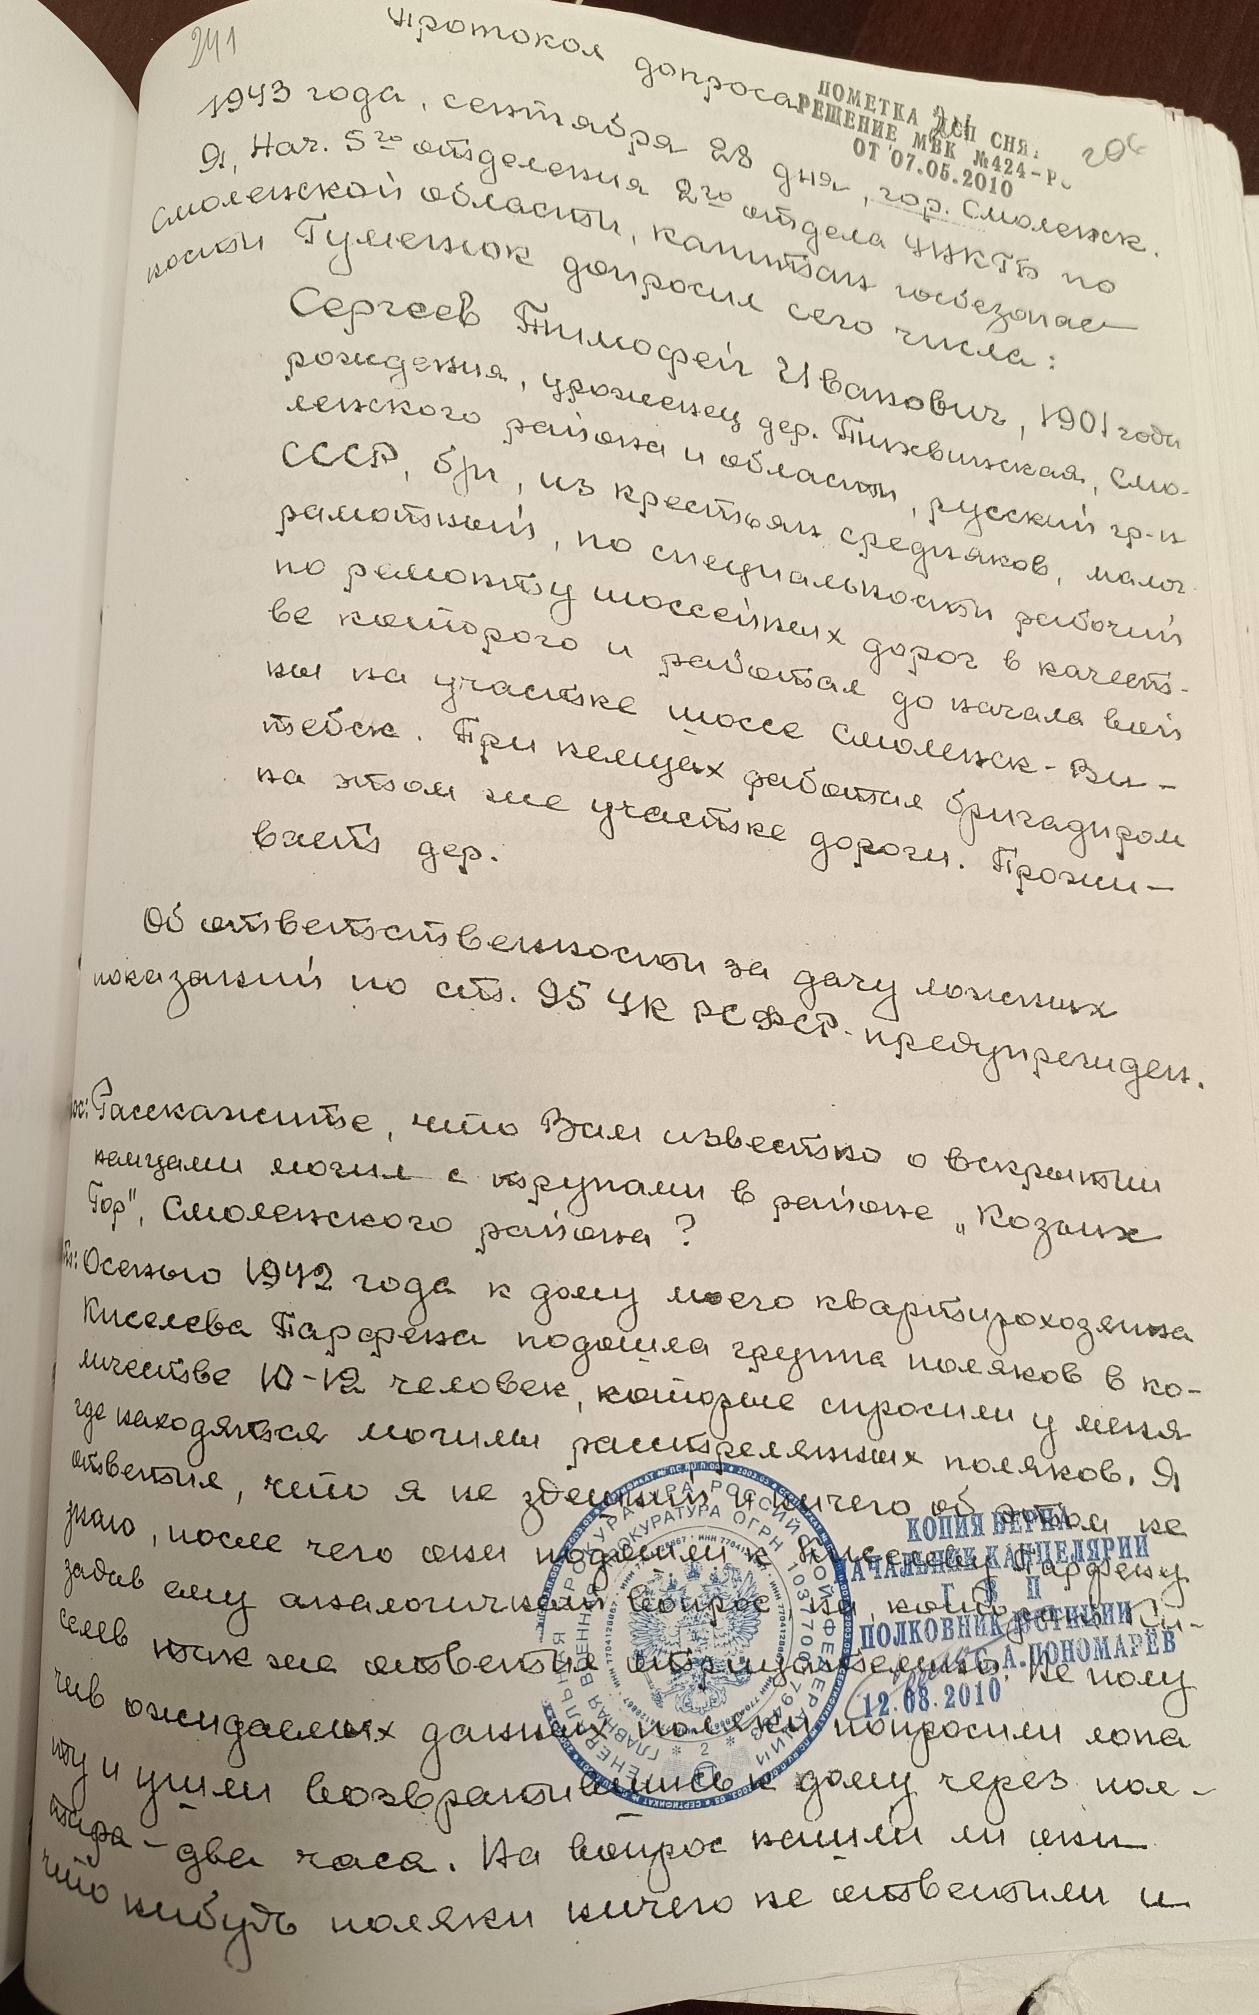 241
Протокол допроса
ПОМЕТКА ДСП СНЯ
РЕШЕНИЕ МВК №424-Р
ОТ 07.05.2010
206
1943 года, сентября 28 дня, гор. Смоленск.
Я, Нач. 5го отделения 2го отдела УНКГБ по
Смоленской области, капитан госбезопас-
ности Гуменюк допросил сего числа:
Сергеев Тимофей Иванович, 1901 года
рождения, уроженец дер. Тихвинская, Смо-
ленского района и области, русский гр-н
СССР, б/п, из крестьян средняков, малог-
рамотный, по специальности рабочий
по ремонту шоссейных дорог в качест-
ве которого и работал до начала вой
ны на участке шоссе Смоленск-Ви-
тебск. При немцах работал бригадиром
на этом же участке дороги. Прожи-
вает дер.
Об ответственности за дачу ложных
показаний по ст. 95 УК РСФСР-предупрежден.
ос: Расскажите, что Вам известно о вскрытии
немцами могил с трупами в районе „Козьих
Гор", Смоленского района?
Осенью 1942 года к дому моего квартирохозяина
Киселева Парфена подошла группа поляков в ко-
личестве 10-12 человек, которые спросили у меня
где находятся могилы расстрелянных поляков. Я
ответил, что я не здешний и ничего об этом не
знаю, после чего они подошли к Киселеву Парфену
задав ему аналогичный вопрос на который Ки-
селев так же ответил отрицательно. Не полу
чив ожидаемых данных поляки попросили лопа
ту и ушли возвратившись к дому через пол-
тора-два часа. На вопрос нашли ли они
что нибудь поляки ничего не ответили и
ГЕНЕРАЛЬНАЯ ПРОКУРАТУРА РОССИЙСКОЙ ФЕДЕРАЦИИ
ГЛАВНАЯ ВОЕННАЯ ПРОКУРАТУРА
* 2 *
КОПИЯ ВЕРНА
АЧАЛЬНИК КАНЦЕЛЯРИИ
Г В П
ПОЛКОВНИК ЮСТИЦИИ
А.ПОНОМАРЕВ
12.08.2010